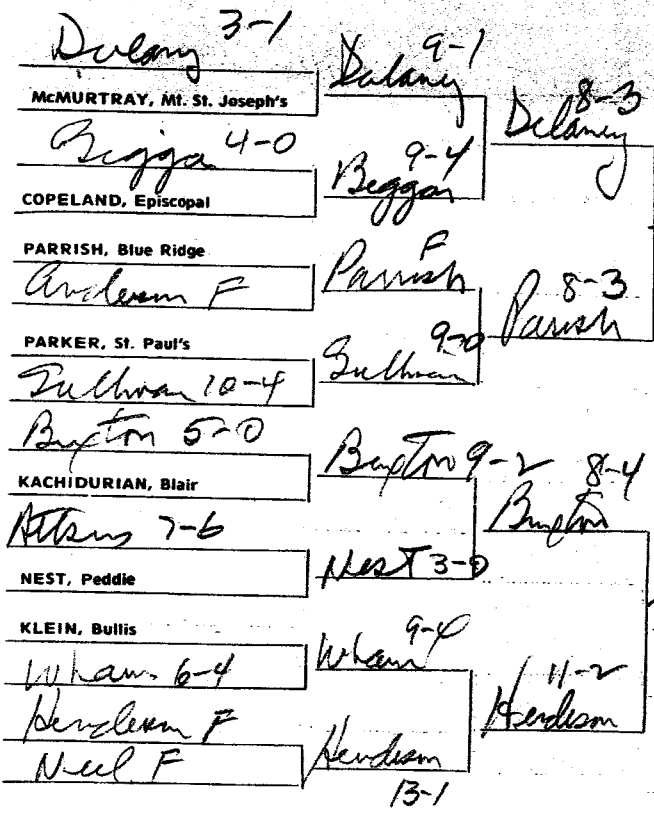 Dulany 3-1
McMURTRAY, Mt. St. Joseph's
Beggan 4-0
COPELAND, Episcopal
PARRISH, Blue Ridge
Anderson F
PARKER, St. Paul's
Sullivan 10-4
Buxton 5-0
KACHIDURIAN, Blair
7-6
NEST, Peddie
KLEIN, Bullis
Wham 6-4
Henderson F
Neel F
Dulaney 9-1
Beggan 9-4
Parrish F
Sullivan 9-0
Buxton 9-2
Nest 3-0
Wham 9-4
Hendeson 13-1
Delaney 8-3
Parish 8-3
Buxton 8-4
Hendeson 11-2